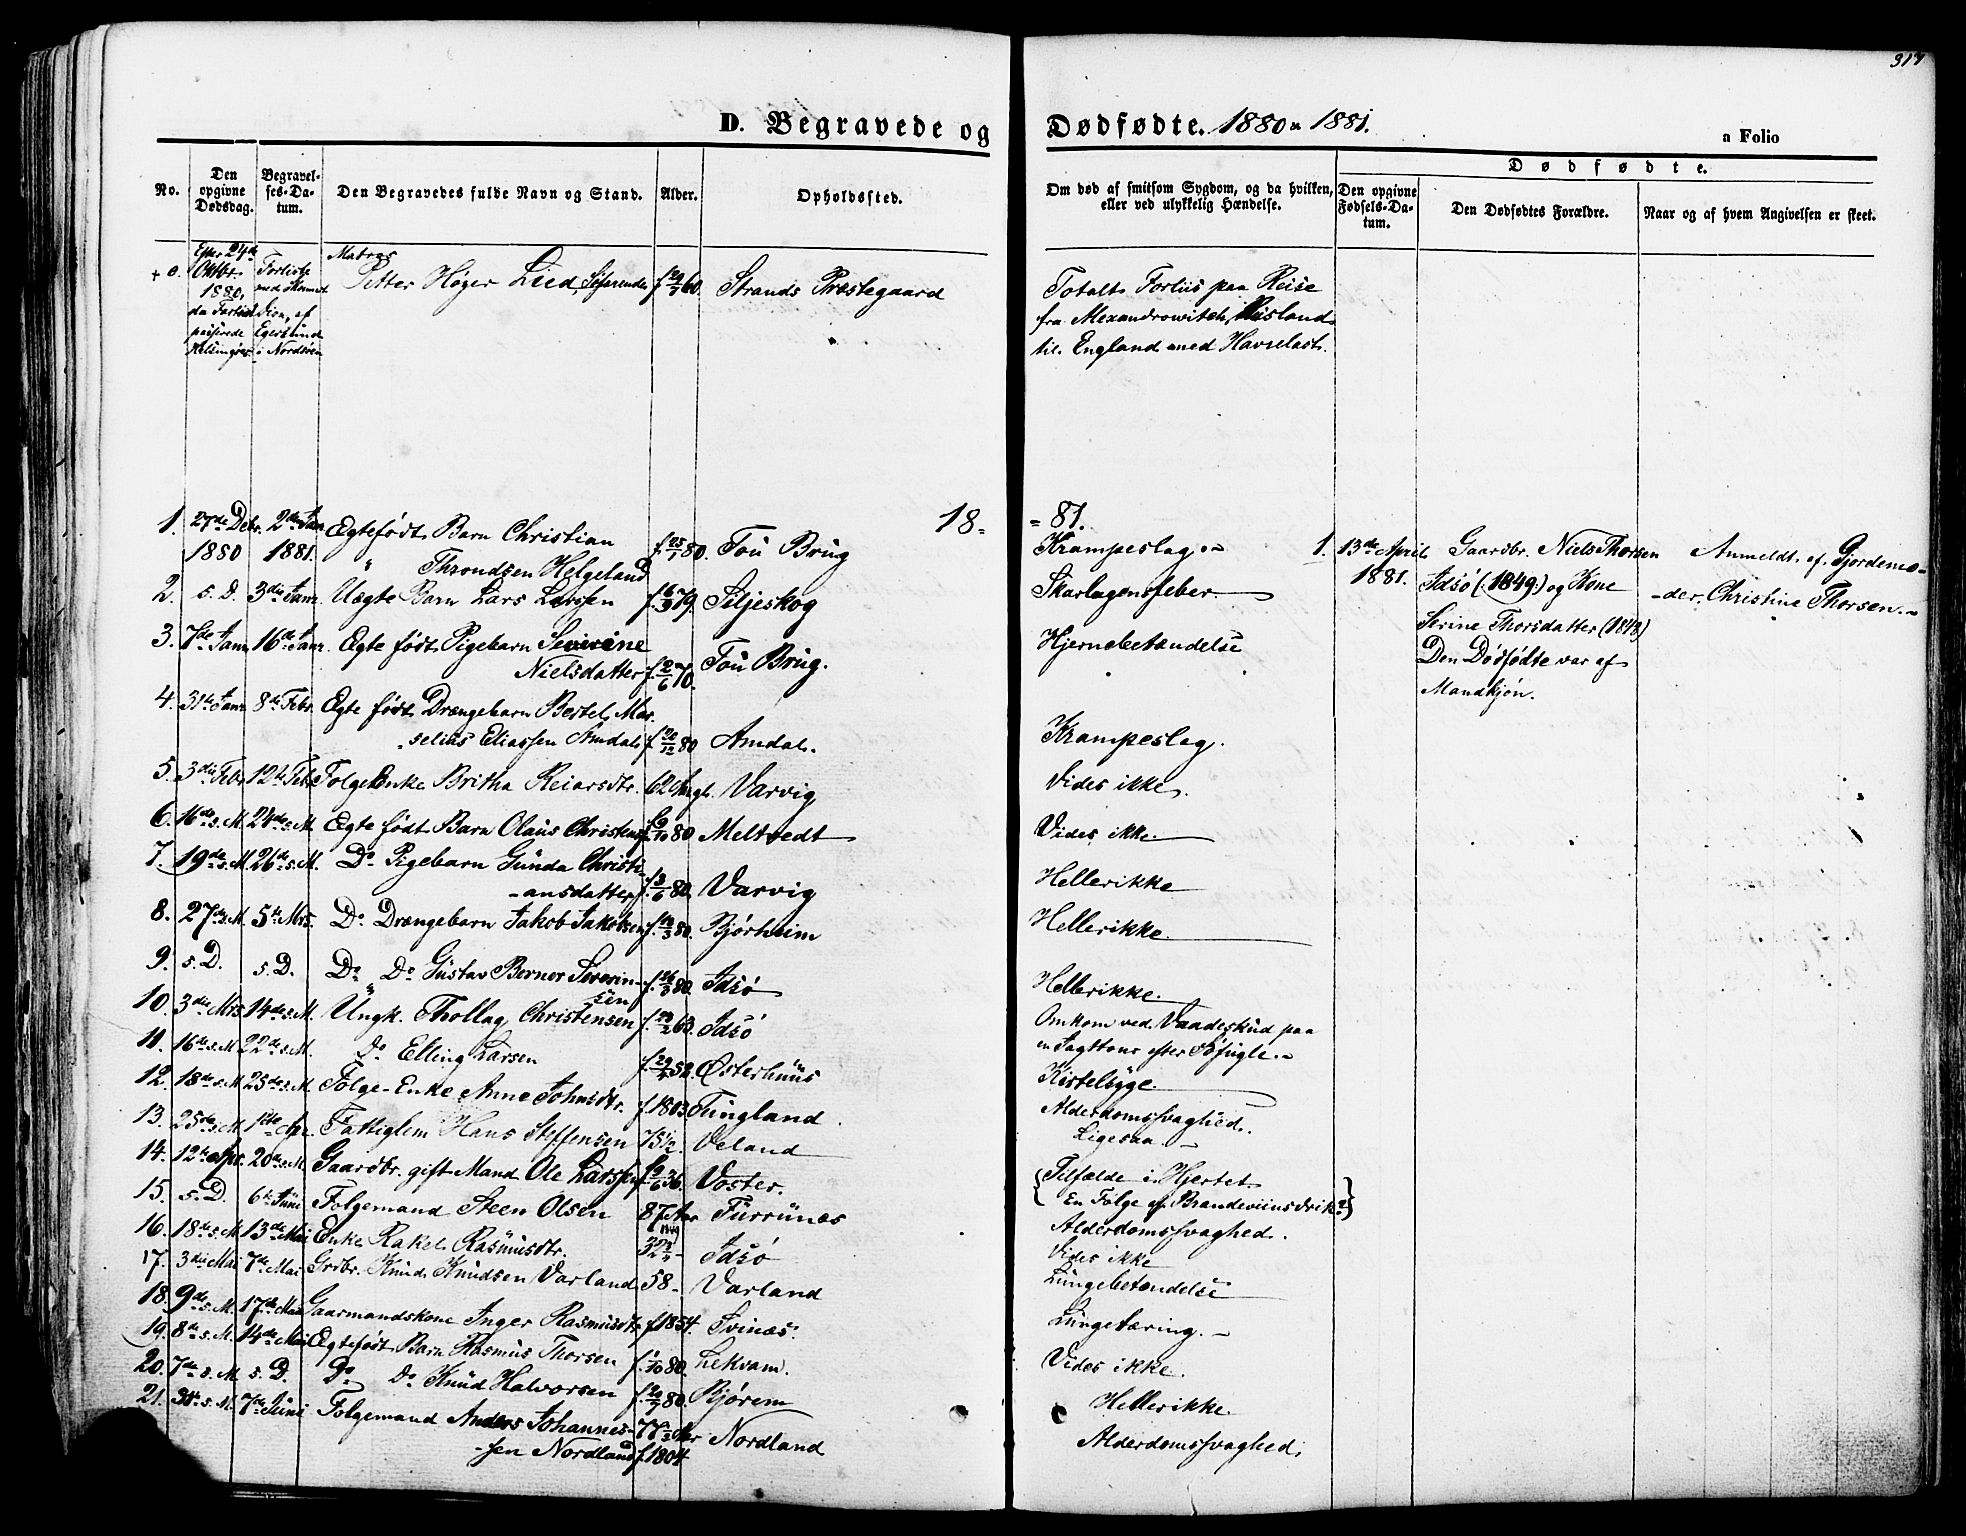 D. Begravede og
Dødfødte. 1880 & 1881.
a Folio
No.
Den opgivne Dødsdag.
Begravel-
ses-Da-
tum.
Den Begravedes fulde Navn og Stand.
Alder.
Opholdssted.
Om død af smitsom Sygdom, og da hvilken,
eller ved ulykkelig Hændelse.
Dødfødte.
Den opgivne
Fødsels-Da-
tum.
Den Dødfødtes Forældre.
Naar og af hvem Angivelsen er skeet.
Efter 24de
Oktbr.
1880,
da Fartøiet
passerede
Helsingør
Forliste
med Skonnert
Dion, af
Egersund
i Nordsøen
Matros
Petter Høyer Lied, Søfarende f. 29/7 60. Strands Præstegaard
Totalt Forlis paa Reise
fra Alexandrowitch, Rusland
til England med Havrelast.
18-
-81.
1. 27de Debr. 2de Janr. Egtefødt Barn Christian
1880 1881. " Throndsen Helgeland f. 25/1 80. Tou Brug Krampeslag
2. s. D. 3die Janr. Uægte Barn Lars Larssen f. 16/9 79. Siljeskog Skarlagensfeber
3. 7de Janr. 16de Janr. Egte født Pigebarn Severine
Nielsdatter f. 2/6 70. Tou Brug. Hjernebetændelse
4. 31te Janr. 8de Febr. Egte født Drængebarn Bertel Mar-
selius Eliassen Amdal f. 20/12 80 Amdal. Krampeslag.
5. 3die Febr. 12te Febr. Folge Enke Britha Reiarsdtr. 62 Aar gl. Varvig Vides ikke.
6. 16de s. M. 24de s. M. Egte født Barn Olaus Christensen f. 9/10 80 Meltvedt Vides ikke.
7. 19de s. M. 26de s. M. Do Pigebarn Gunda Christi-
-ansdatter f. 3/6 80. Varvig Hellerikke
8. 27de s. M. 5te Mrs. Do Drængebarn Jakob Jakobsen f. 19/3 80. Bjørheim Hellerikke.
9. s. D. s. D. Do Do Gustav Berner Severin-
sen f. 26/3 80. Idsø Hellerikke.
10. 3die Mrs. 14de s. M. Ungk. Thollag Christensen f. 23/2 63. Idsø Omkom ved Vaadeskud paa
en Jagttour efter Søfugle.
11. 16de s. M. 22de s. M. Do Elling Larsen f. 29/4 52. Østerhuus Kirtelsyge.
12. 18de s. M. 25de s. M. Folge-Enke Anne Johnsdtr. f. 1803. Tungland. Alderdomssvaghed.
13. 25de s. M. 1ste Apr. Fattiglem Hans Steffensen 75 1/2 Veland Ligesaa.
14. 12te Apr. 20de s. M. Gaardbr. gift Mand Ole Larssen f. 9/6 36. Voster. Tilfælde i Hjertet.
En Følge af Brandeviinsdrik?
15. s. D. 6te Juni Folgemand Steen Olsen 87 Aar Furrunes Alderdomssvaghed.
16. 18de s. M. 13de Mai Enke Rakel Rasmusdtr. Idsø Vides ikke
17. 3die Mai 7de Mai Grdbr. Knud Knudsen Varland 58 - Varland Lungebetændelse
18. 9de s. M. 17de Mai Gaarmandskone Inger Rasmusdtr. f. 1854. Svinæs. Lungetæring.
19. 8de s. M. 14de Mai Egtefødt Barn Rasmus Thorsen f. 1/10 80. Lekvam. Vides ikke.
20. 7de s. M. s. D. Do Do Knud Halvorsen f. 20/7 80. Bjørem Hellerikke.
21. 31te s. M. 7de Juni Folgemand Anders Johannes-
-sen Nordland 77 1/2 Aar f. 1804. Nordland Alderdomssvaghed.
1. 13de April
1881.
Gaardbr. Niels Thorsen
Idsø (1849) og Kone
Serine Thorsdatter (1848)
Den Dødfødte var af
Mandkjøn.
Anmeldt af Gjordemo-
-der, Christine Thorsen.